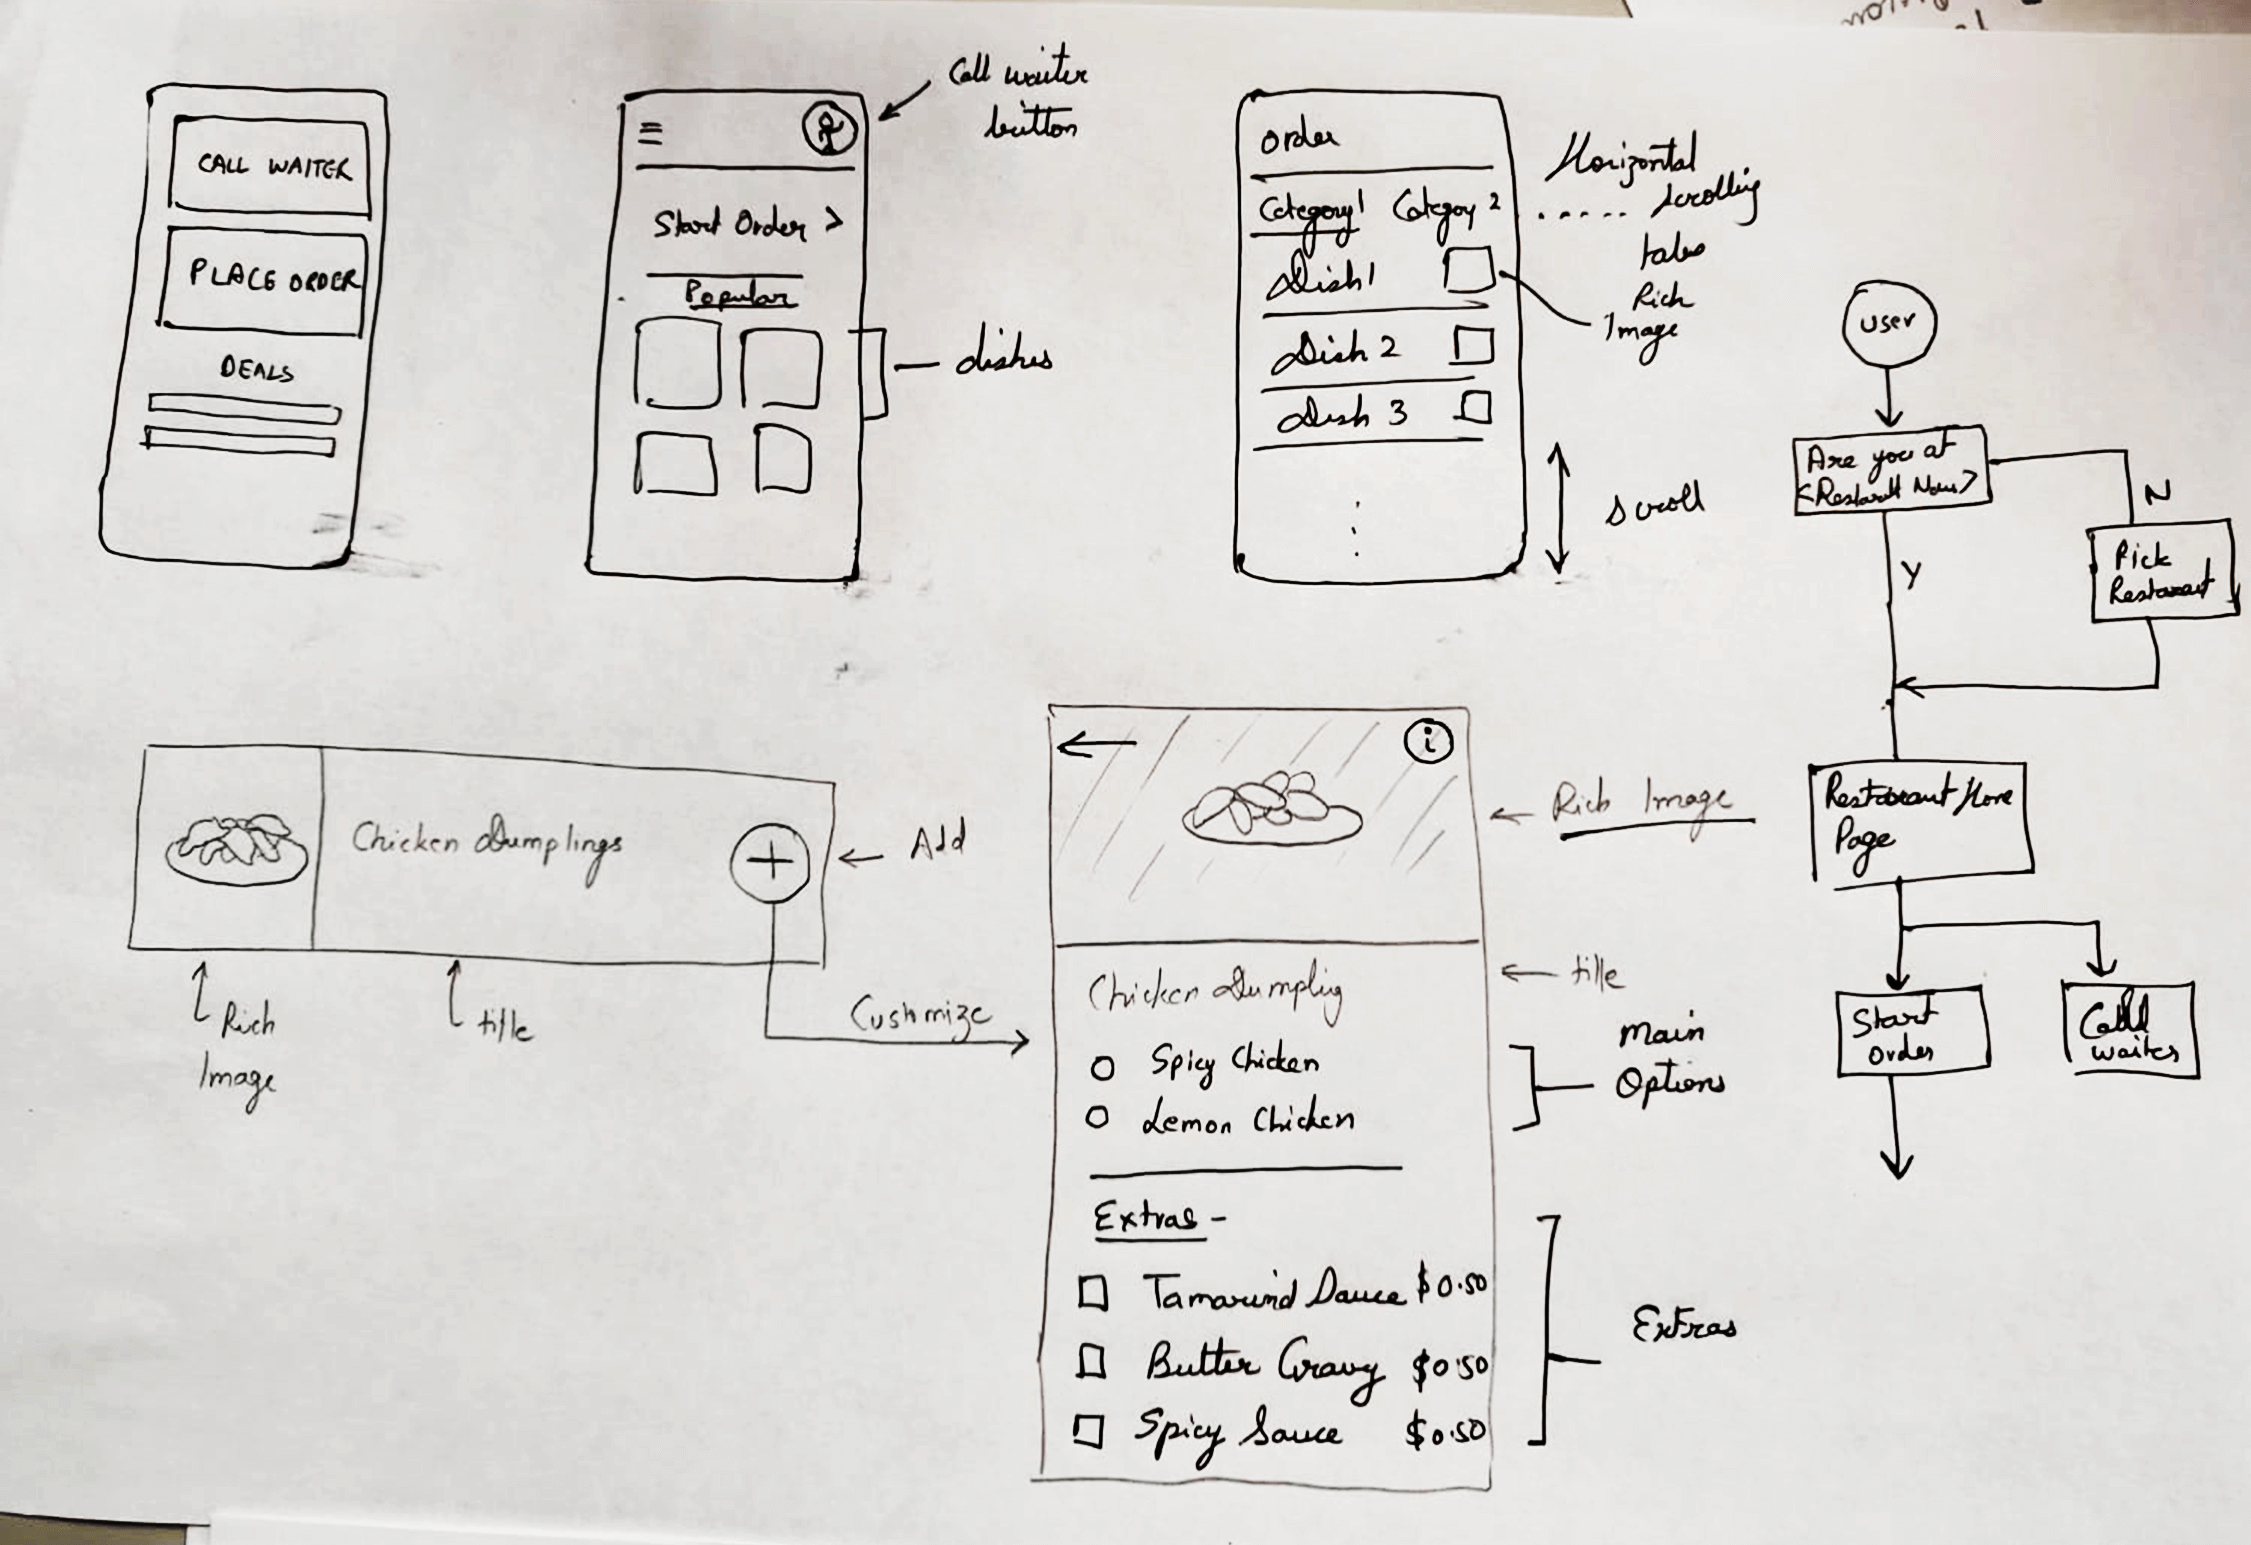 CALL WAITER
PLACE ORDER
DEALS
Call waiter
button
Start Order >
Popular
dishes
Order
Category 1 Categoy 2
Dish 1
Dish 2
Dish 3
Horizontal
scrolling
tabs
Rich
Image
Scroll
User
Are you at
N
Y
Pick
Restaurant Home
Page
Start
Order
Call
waiter
Chicken Dumplings
Add
Rich
Image
title
Customize
i
Rich Image
Chicken Dumplig
title
Spicy Chicken
Lemon Chicken
Main
Options
Extras -
Tamarind Sauce $0.50
Butter Gravy $0.50
Spicy Sauce $0.50
Extras